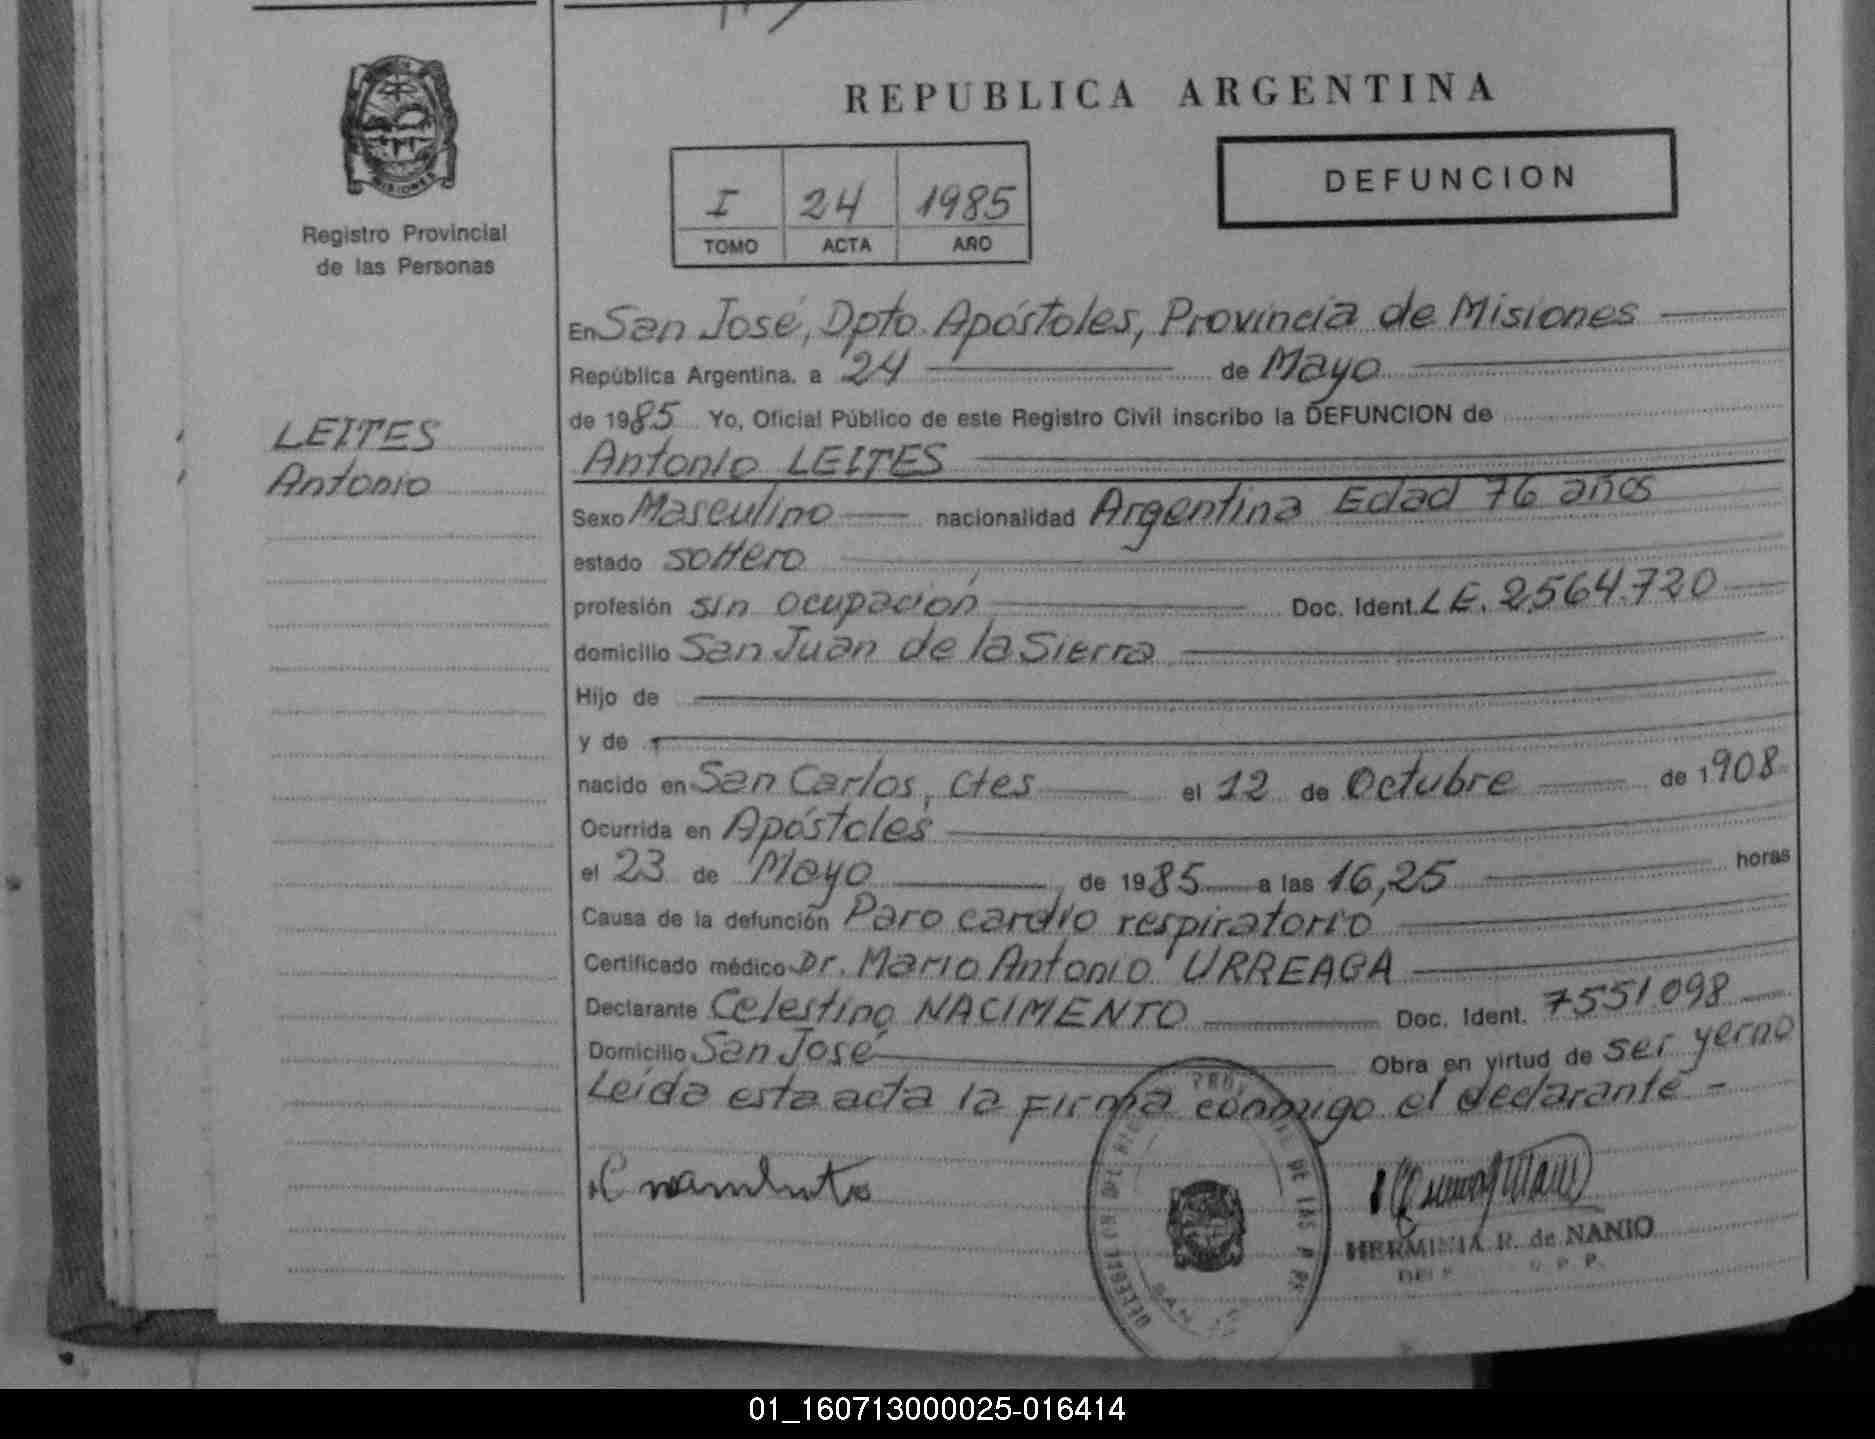 REPUBLICA ARGENTINA
MISIONES
Registro Provincial
de las Personas
I 24 1985
TOMO ACTA AÑO
DEFUNCION
LEITES
Antonio
En San José, Dpto. Apóstoles, Provincia de Misiones
República Argentina, a 24 de Mayo
de 1985 Yo, Oficial Público de este Registro Civil inscribo la DEFUNCION de
Antonio LEITES
Sexo Masculino nacionalidad Argentina Edad 76 años
estado soltero
profesión sin ocupación Doc. Ident. L.E. 2.564.720
domicilio San Juan de la Sierra
Hijo de
y de
nacido en San Carlos, Ctes el 12 de Octubre de 1908
Ocurrida en Apóstoles
el 23 de Mayo de 1985 a las 16,25 horas
Causa de la defunción Paro cardio respiratorio
Certificado médico Dr. Mario Antonio URREAGA
Declarante Celestino NACIMENTO Doc. Ident. 7551098
Domicilio San José Obra en virtud de ser yerno
Leída esta acta la firma conmigo el declarante -
HERMINIA R. de NANIO
01_160713000025-016414